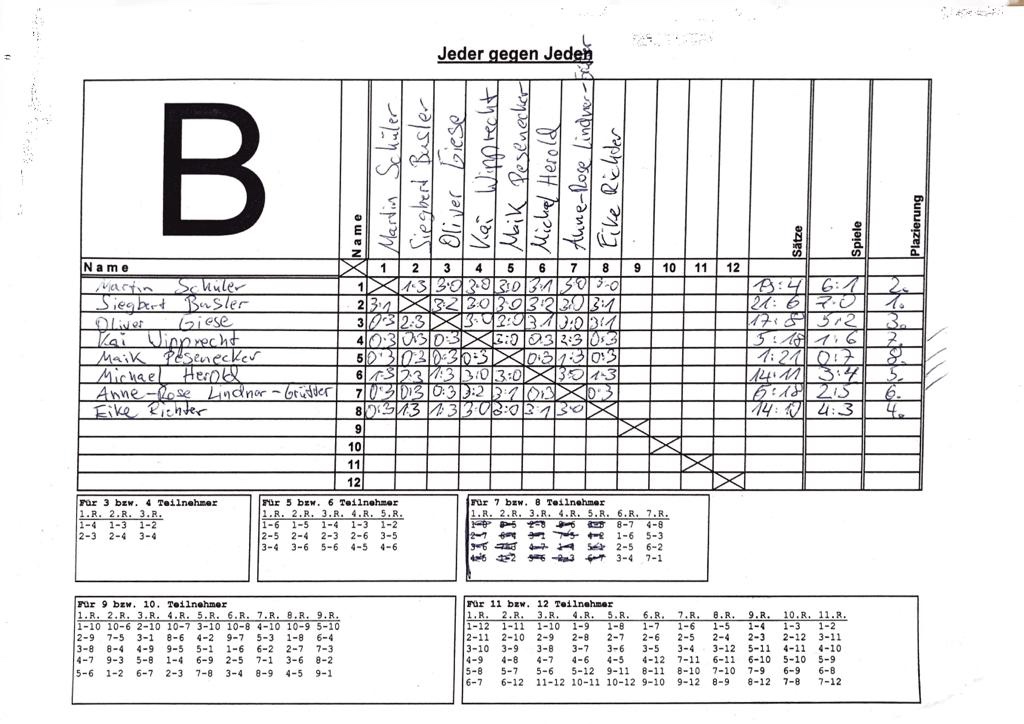 Jeder gegen Jeden
B
Name
Martin Schüler
Siegbert Busler
Oliver Giese
Kai Wipprecht
Maik Pesenecker
Michael Herold
Anne-Rose Lindner-Grützer
Eike Richter
Sätze
Spiele
Plazierung
Name 1 2 3 4 5 6 7 8 9 10 11 12
Martin Schüler 1 1:3 3:0 3:0 3:0 3:1 3:0 3:0 19:4 6:1 2.
Siegbert Busler 2 3:1 3:2 3:0 3:0 3:2 3:0 3:1 21:6 7:0 1.
Oliver Giese 3 0:3 2:3 3:0 3:0 3:1 3:0 3:1 17:8 5:2 3.
Kai Wipprecht 4 0:3 0:3 0:3 3:0 0:3 2:3 0:3 5:18 1:6 7.
Maik Pesenecker 5 0:3 0:3 0:3 0:3 0:3 1:3 0:3 1:21 0:7 8.
Michael Herold 6 1:3 2:3 1:3 3:0 3:0 3:0 1:3 14:11 3:4 5.
Anne-Rose Lindner-Grützer 7 0:3 0:3 0:3 3:2 3:1 0:3 0:3 6:18 2:5 6.
Eike Richter 8 0:3 1:3 1:3 3:0 3:0 3:1 3:0 14:10 4:3 4.
9
10
11
12
Für 3 bzw. 4 Teilnehmer
1.R. 2.R. 3.R.
1-4 1-3 1-2
2-3 2-4 3-4
Für 5 bzw. 6 Teilnehmer
1.R. 2.R. 3.R. 4.R. 5.R.
1-6 1-5 1-4 1-3 1-2
2-5 2-4 2-3 2-6 3-5
3-4 3-6 5-6 4-5 4-6
Für 7 bzw. 8 Teilnehmer
1.R. 2.R. 3.R. 4.R. 5.R. 6.R. 7.R.
8-7 4-8
1-6 5-3
2-5 6-2
3-4 7-1
Für 9 bzw. 10. Teilnehmer
1.R. 2.R. 3.R. 4.R. 5.R. 6.R. 7.R. 8.R. 9.R.
1-10 10-6 2-10 10-7 3-10 10-8 4-10 10-9 5-10
2-9 7-5 3-1 8-6 4-2 9-7 5-3 1-8 6-4
3-8 8-4 4-9 9-5 5-1 1-6 6-2 2-7 7-3
4-7 9-3 5-8 1-4 6-9 2-5 7-1 3-6 8-2
5-6 1-2 6-7 2-3 7-8 3-4 8-9 4-5 9-1
Für 11 bzw. 12 Teilnehmer
1.R. 2.R. 3.R. 4.R. 5.R. 6.R. 7.R. 8.R. 9.R. 10.R. 11.R.
1-12 1-11 1-10 1-9 1-8 1-7 1-6 1-5 1-4 1-3 1-2
2-11 2-10 2-9 2-8 2-7 2-6 2-5 2-4 2-3 2-12 3-11
3-10 3-9 3-8 3-7 3-6 3-5 3-4 3-12 5-11 4-11 4-10
4-9 4-8 4-7 4-6 4-5 4-12 7-11 6-11 6-10 5-10 5-9
5-8 5-7 5-6 5-12 9-11 8-11 8-10 7-10 7-9 6-9 6-8
6-7 6-12 11-12 10-11 10-12 9-10 9-12 8-9 8-12 7-8 7-12